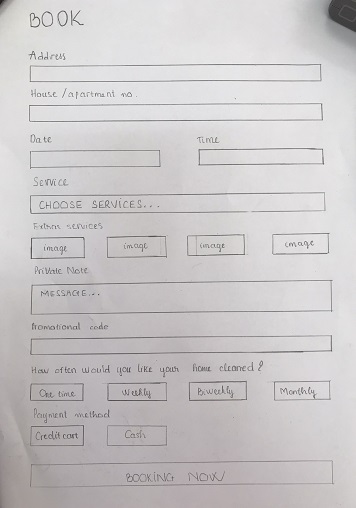 BOOK
Address
House / apartment no.
Date Time
Service
CHOOSE SERVICES...
Extra services
image image image image
Private Note
MESSAGE...
Promotional code
How often would you like your home cleaned?
One time Weekly Biweekly Monthly
Payment method
Credit cart Cash
BOOKING NOW